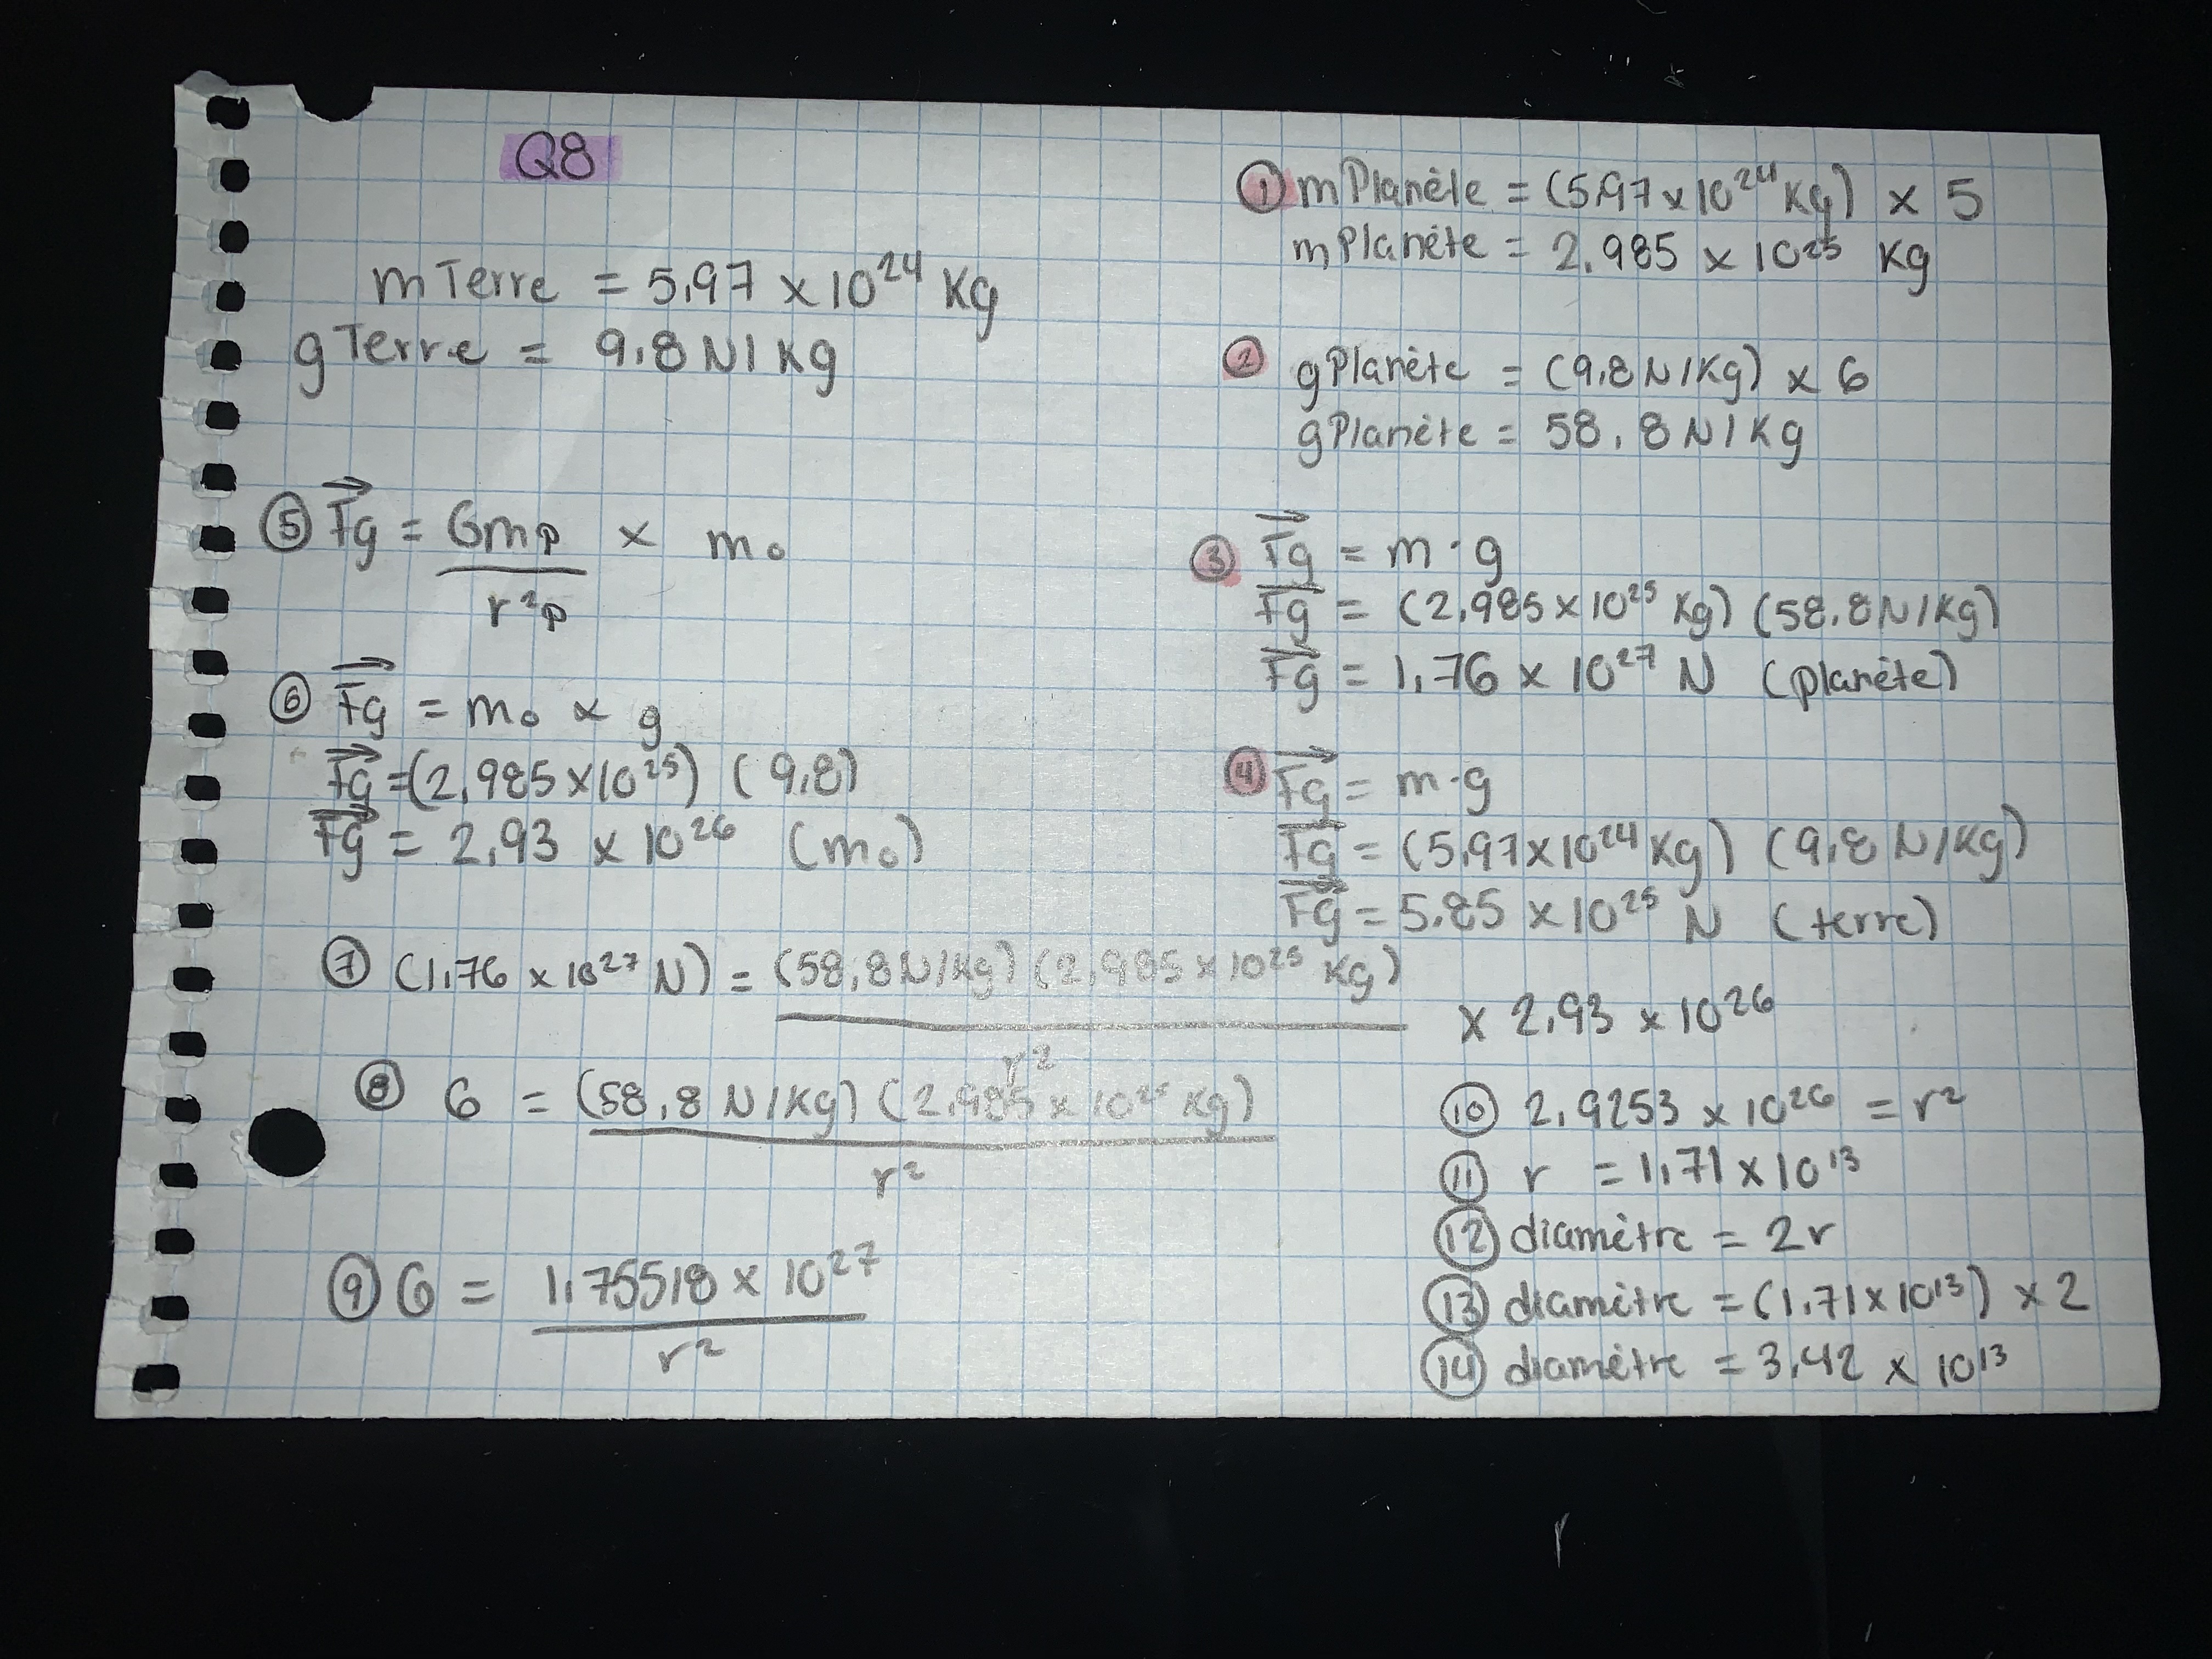 Q8
mTerre = 5,97 x 10²⁴ Kg
gTerre = 9.8 N/Kg
① mPlanète = (5,97 x 10²⁴ Kg) x 5
mPlanète = 2.985 x 10²⁵ Kg
② gPlanète = (9,8 N/Kg) x 6
gPlanète = 58.8 N/Kg
③ Fg = m · g
Fg = (2,985 x 10²⁵ Kg) (58.8 N/Kg)
Fg = 1,76 x 10²⁷ N (planète)
④ Fg = m · g
Fg = (5,97 x 10²⁴ Kg) (9,8 N/Kg)
Fg = 5.85 x 10²⁵ N (terre)
⑤ Fg = Gmp / r²p x mo
⑥ Fg = mo x g
Fg = (2,985 x 10²⁵) (9,8)
Fg = 2,93 x 10²⁶ (mo)
⑦ (1,76 x 10²⁷ N) = (58,8 N/Kg) (2,985 x 10²⁵ Kg) / r² x 2,93 x 10²⁶
⑧ 6 = (58,8 N/Kg) (2,985 x 10²⁵ Kg) / r²
⑨ 6 = 1,75518 x 10²⁷ / r²
⑩ 2,9253 x 10²⁶ = r²
⑪ r = 1,71 x 10¹³
⑫ diamètre = 2r
⑬ diamètre = (1,71 x 10¹³) x 2
⑭ diamètre = 3,42 x 10¹³